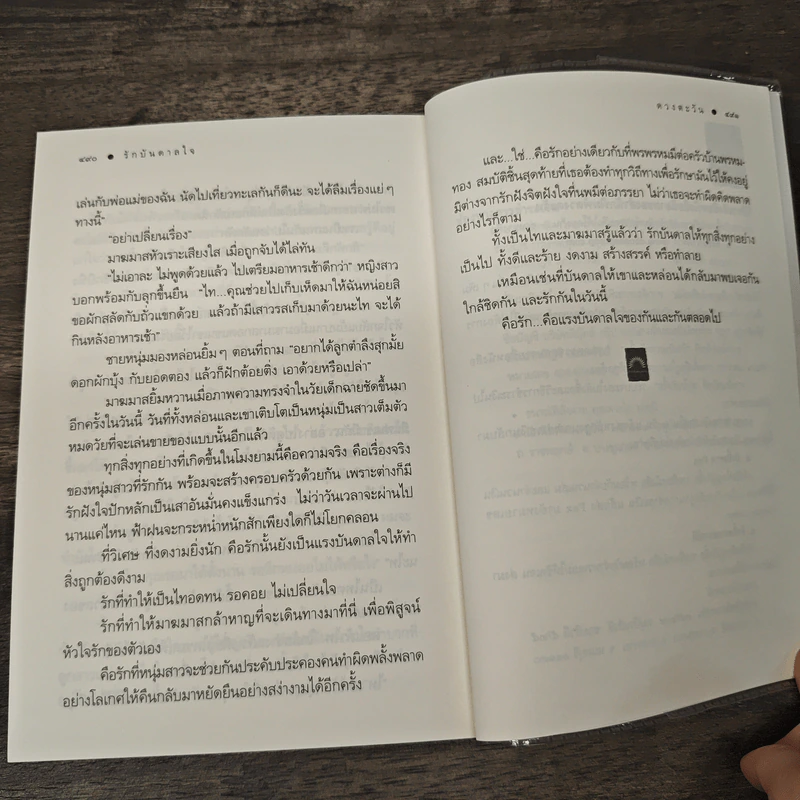 ๔๙๐ ● รักบันดาลใจ
เล่นกับพ่อแม่ของฉัน นัดไปเที่ยวทะเลกันก็ดีนะ จะได้ลืมเรื่องแย่ๆ
ทางนี้”
“อย่าเปลี่ยนเรื่อง”
มาฆมาสหัวเราะเสียงใส เมื่อถูกจับได้ไล่ทัน
“ไม่เอาละ ไม่พูดด้วยแล้ว ไปเตรียมอาหารเช้าดีกว่า” หญิงสาว
บอกพร้อมกับลุกขึ้นยืน “ไท...คุณช่วยไปเก็บเห็ดมาให้ฉันหน่อยสิ
ขอผักสลัดกับถั่วแขกด้วย แล้วถ้ามีเสาวรสเก็บมาด้วยนะไท จะได้
กินหลังอาหารเช้า”
ชายหนุ่มมองหล่อนยิ้มๆ ตอนที่ถาม “อยากได้ลูกตำลึงสุกมั้ย
ดอกผักบุ้ง กับยอดตอง แล้วก็ฝักต้อยติ่ง เอาด้วยหรือเปล่า”
มาฆมาสยิ้มหวานเมื่อภาพความทรงจำในวัยเด็กฉายชัดขึ้นมา
อีกครั้งในวันนี้ วันที่ทั้งหล่อนและเขาเติบโตเป็นหนุ่มเป็นสาวเต็มตัว
หมดวัยที่จะเล่นขายของแบบนั้นอีกแล้ว
ทุกสิ่งทุกอย่างที่เกิดขึ้นในโมงยามนี้คือความจริง คือเรื่องจริง
ของหนุ่มสาวที่รักกัน พร้อมจะสร้างครอบครัวด้วยกัน เพราะต่างก็มี
รักฝังใจปักหลักเป็นเสาอันมั่นคงแข็งแกร่ง ไม่ว่าวันเวลาจะผ่านไป
นานแค่ไหน ฟ้าฝนจะกระหน่ำหนักสักเพียงใดก็ไม่โยกคลอน
ที่วิเศษ ที่งดงามยิ่งนัก คือรักนั้นยังเป็นแรงบันดาลใจให้ทำ
สิ่งถูกต้องดีงาม
รักที่ทำให้เป็นไทอดทน รอคอย ไม่เปลี่ยนใจ
รักที่ทำให้มาฆมาสกล้าหาญที่จะเดินทางมาที่นี่ เพื่อพิสูจน์
หัวใจรักของตัวเอง
คือรักที่หนุ่มสาวจะช่วยกันประคับประคองคนทำผิดพลั้งพลาด
อย่างโลเกศให้คืนกลับมาหยัดยืนอย่างสง่างามได้อีกครั้ง
ดวงตะวัน ● ๔๙๑
และ...ใช่...คือรักอย่างเดียวกับที่พรพรหมมีต่อครัวบ้านพรหม-
ทอง สมบัติชิ้นสุดท้ายที่เธอต้องทำทุกวิถีทางเพื่อรักษามันไว้ให้คงอยู่
มิต่างจากรักฝังจิตฝังใจที่นทมีต่อภรรยา ไม่ว่าเธอจะทำผิดคิดพลาด
อย่างไรก็ตาม
ทั้งเป็นไทและมาฆมาสรู้แล้วว่า รักบันดาลให้ทุกสิ่งทุกอย่าง
เป็นไป ทั้งดีและร้าย งดงาม สร้างสรรค์ หรือทำลาย
เหมือนเช่นที่บันดาลให้เขาและหล่อนได้กลับมาพบเจอกัน
ใกล้ชิดกัน และรักกันในวันนี้
คือรัก...คือแรงบันดาลใจของกันและกันตลอดไป